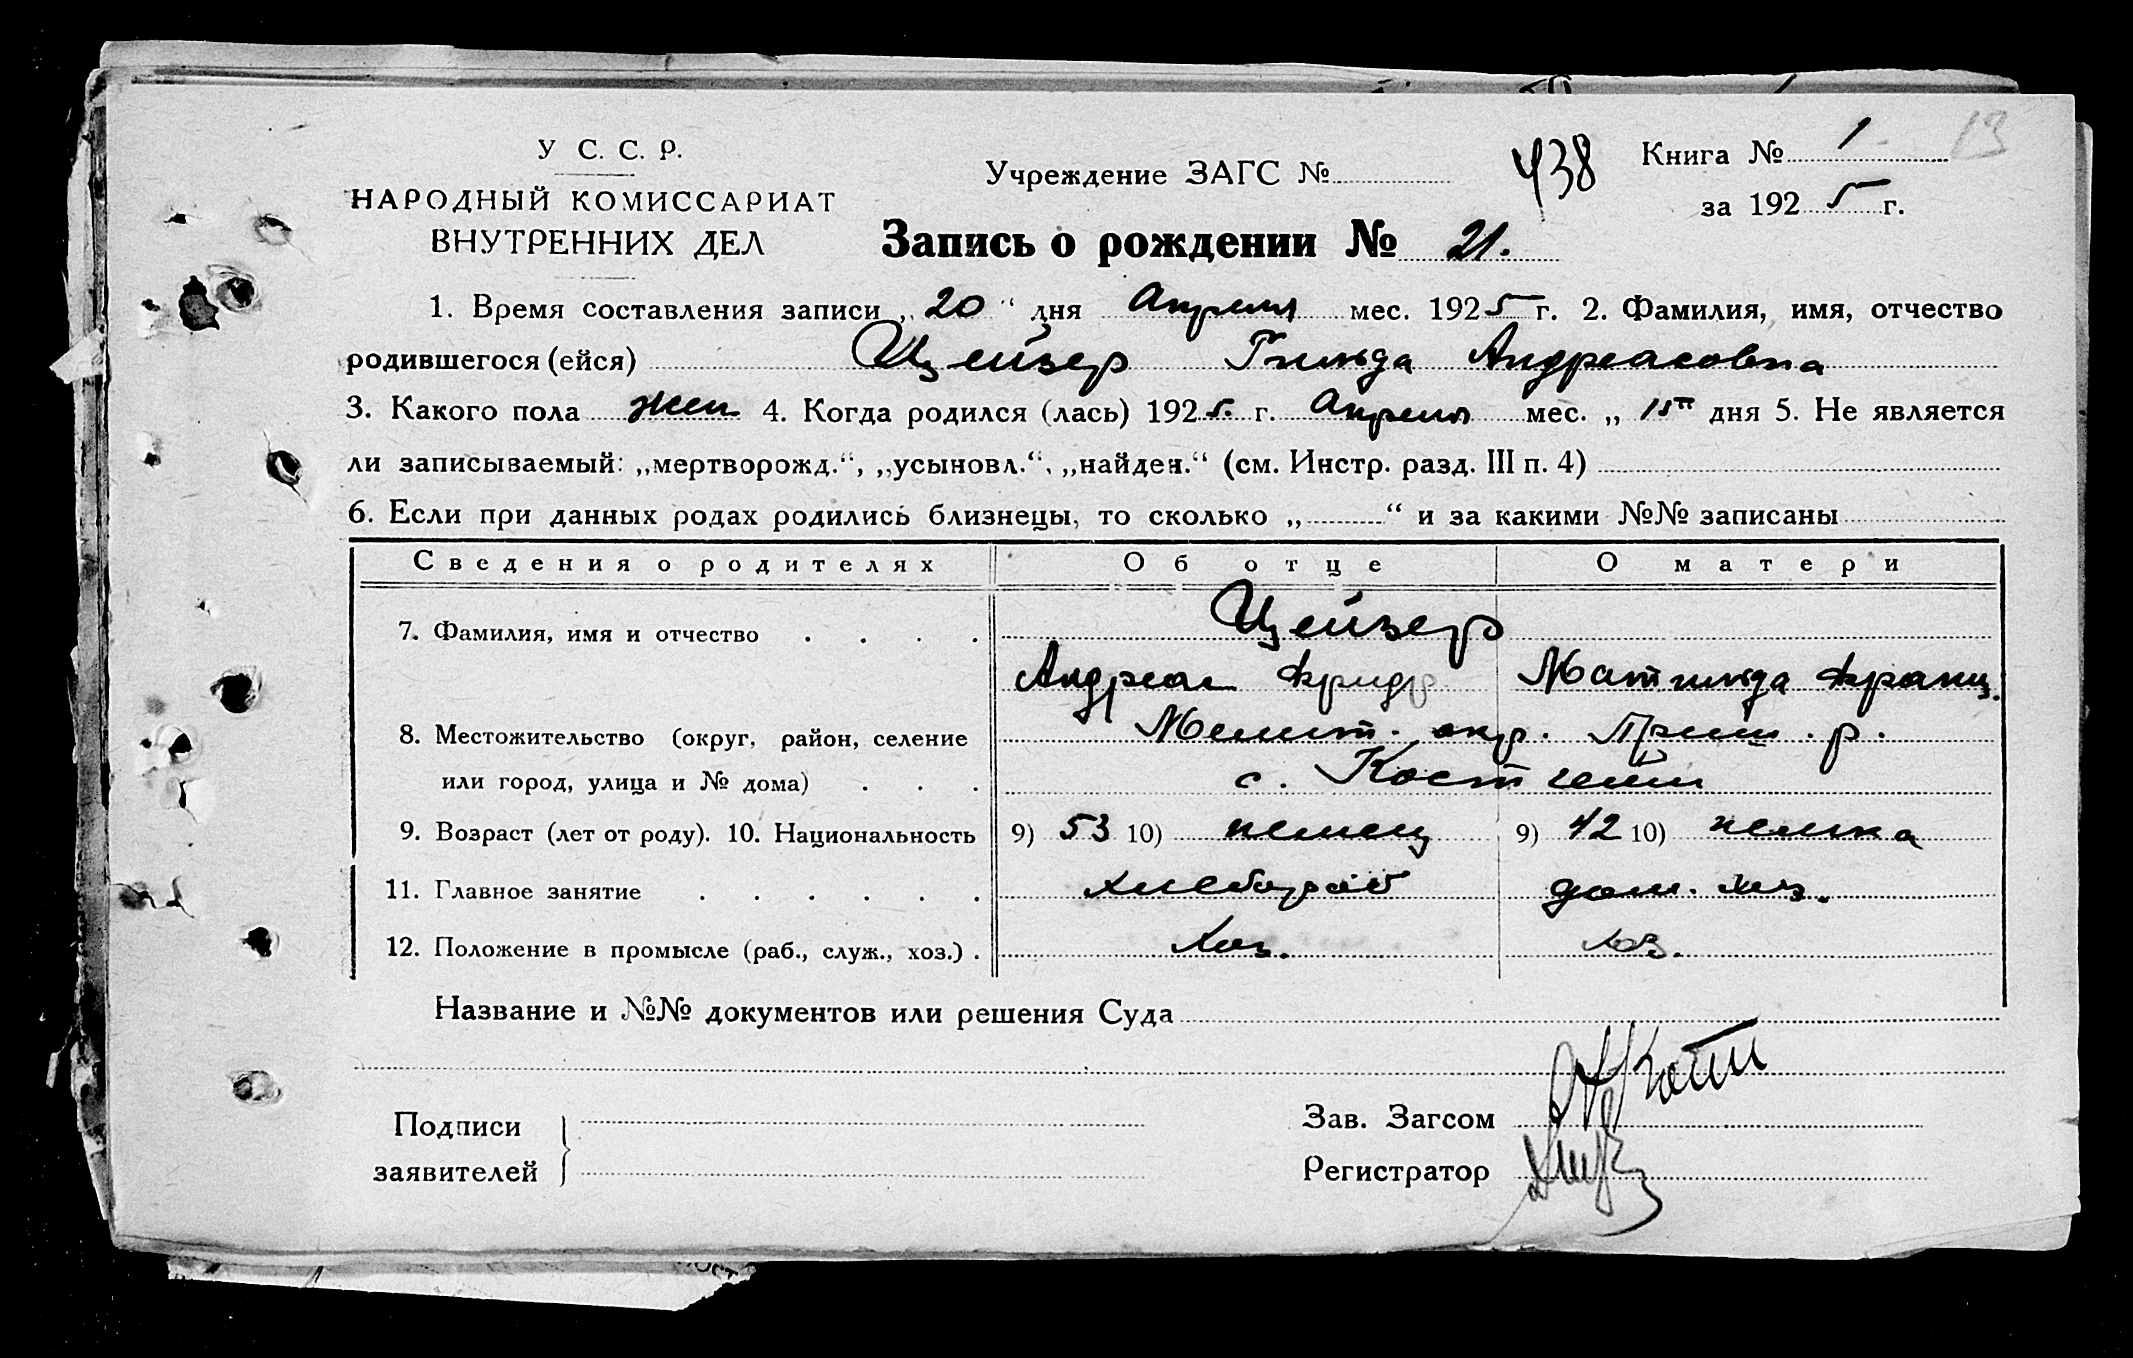 У С. С. Р.
НАРОДНЫЙ КОМИССАРИАТ
ВНУТРЕННИХ ДЕЛ
Учреждение ЗАГС №
438
Книга № 1.
13
за 1925 г.
Запись о рождении № 21.
1. Время составления записи „20“ дня Апреля мес. 1925 г. 2. Фамилия, имя, отчество
родившегося (ейся) Цейзер Гильда Андреасовна
3. Какого пола жен 4. Когда родился (лась) 1925. г. Апреля мес. „ 15 дня 5. Не является
ли записываемый: „мертворожд.“, „усыновл.“, „найден.“ (см. Инстр. разд. III п. 4)
6. Если при данных родах родились близнецы, то сколько „ “ и за какими №№ записаны
Сведения о родителях Об отце О матери
7. Фамилия, имя и отчество . . . . Цейзер
Андреас Фридр Матильда Франц.
8. Местожительство (округ, район, селение Мелит. окр. Приш. р.
или город, улица и № дома) . . . с. Костгейм
9. Возраст (лет от роду). 10. Национальность 9) 53 10) немец 9) 42 10) немка
11. Главное занятие . . . . . . хлебороб дом. хоз.
12. Положение в промысле (раб., служ., хоз.) . хоз. хоз.
Название и №№ документов или решения Суда
Подписи
заявителей
Зав. Загсом
Регистратор